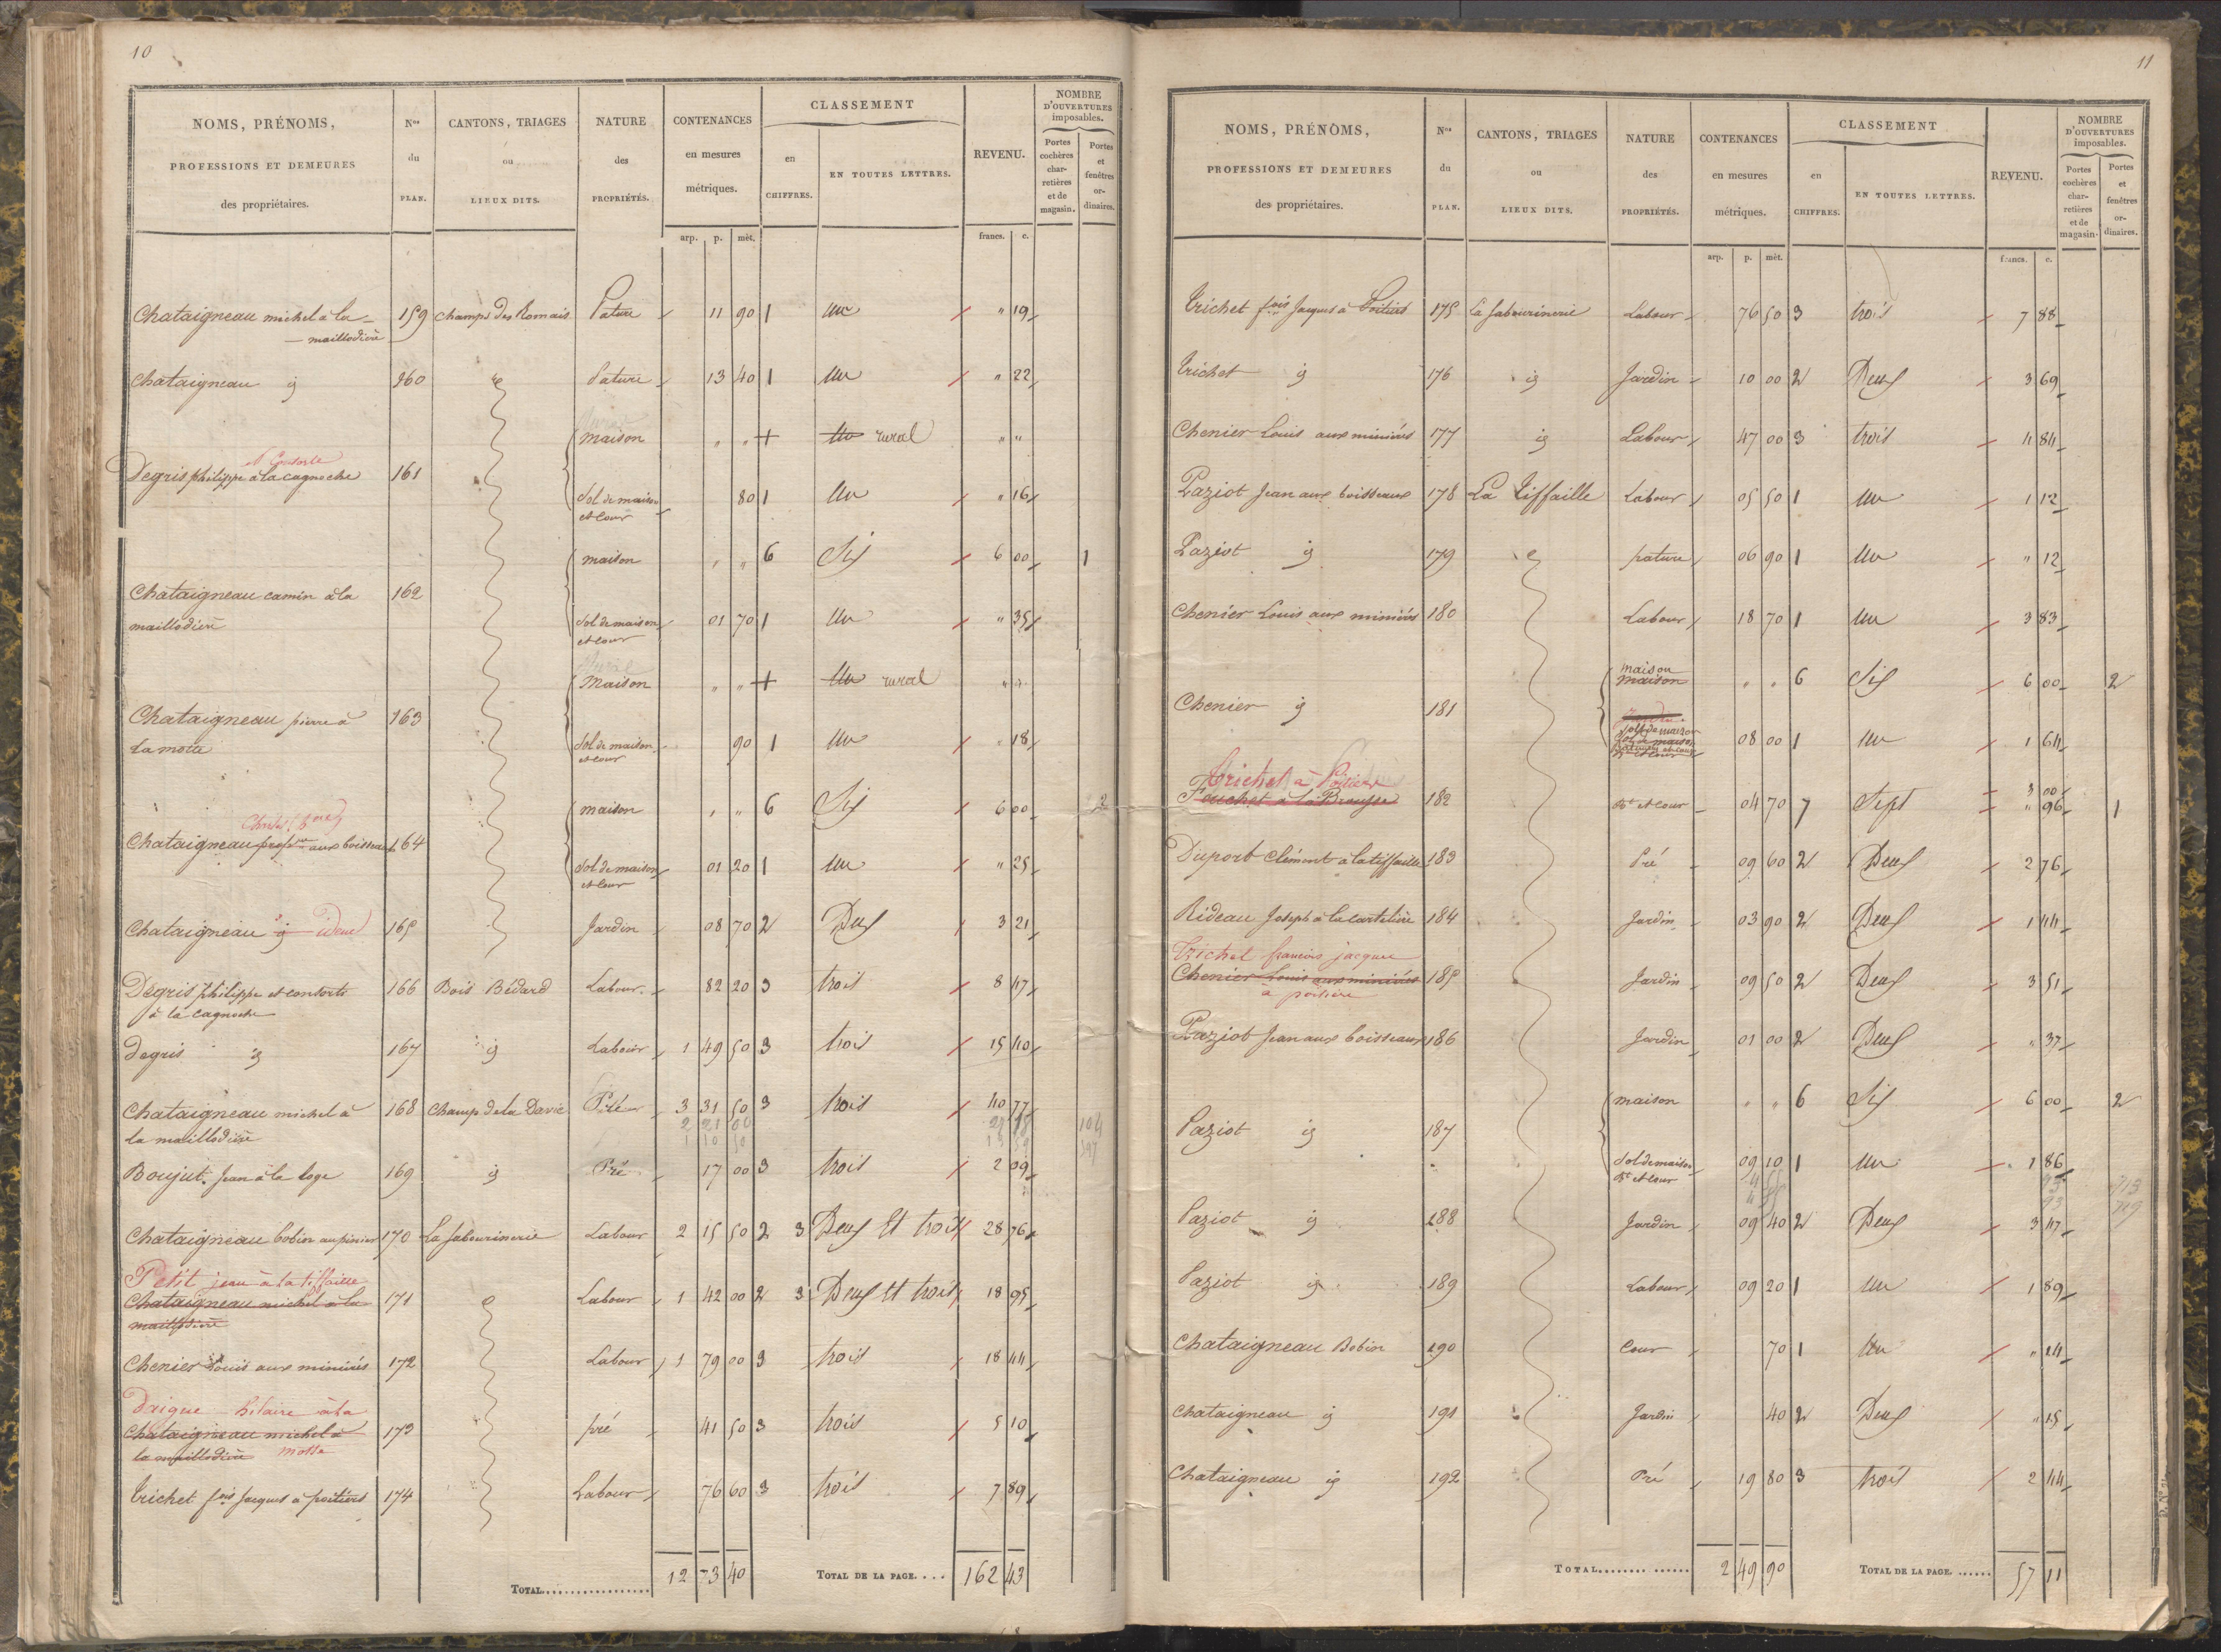 10
NOMS, PRÉNOMS, PROFESSIONS ET DEMEURES des propriétaires. Nos du PLAN. CANTONS, TRIAGES ou LIEUX DITS. NATURE des PROPRIÉTÉS. CONTENANCES en mesures métriques. CLASSEMENT en CHIFFRES. EN TOUTES LETTRES. REVENU. NOMBRE D'OUVERTURES imposables. Portes cochères charretières et de magasin. Portes et fenêtres ordinaires.
arp. p. mèt. francs. c.
Chataigneau michel à la 159 Champs Des Romais Pature 11 90 1 Un " 19
maillodière
Chataigneau id 160 id Pature 13 40 1 Un " 22
maison " " + Un rural " "
et Consorts
Degris philippe à la cagnoche 161
Sol de maison 80 1 Un " 16
et Cour
maison " " 6 Six 6 00 1
Chataigneau camin à la 162
maillodière Sol de maison 01 70 1 Un " 35
et Cour
Maison " " + Un rural " "
Chataigneau pierre à 163
La motte Sol de maison 90 1 Un " 18
et cour
maison " " 6 Six 6 00 2
Chataigneau aux boisseaux 164
Sol de maison 01 20 1 Un " 25
et Cour
Chataigneau id idem 165 Jardin 08 70 2 Deux 3 21
Degris philippe et consorts 166 Bois Bédard Labour 82 20 3 trois 8 47
à la cagnoche
Degris id 167 id Labour 1 49 50 3 trois 15 40
Chataigneau michel à 168 Champ de la Davie Pré 3 31 50 3 trois 40 77
2 21 00
1 10 50
la maillodière
Boujut Jean à la loge 169 id Pré 17 00 3 trois 2 09
Chataigneau bobin au pinier 170 La Sabourinerie Labour 2 15 50 2 3 Deux Et trois 28 76
Petit jean à la tiffaille
Chataigneau michel à la 171 Labour 1 42 00 2 3 Deux Et trois 18 95
maillodière
Chenier Louis aux minières 172 Labour 1 79 00 3 trois 18 44
Daigue hilaire à la
Chataigneau michel à 173 pré 41 50 3 trois 5 10
la maillodière motte
Trichet fois Jacques à poitiers 174 Labour 76 60 3 trois 7 89
TOTAL 12 73 40 TOTAL DE LA PAGE 162 43
11
NOMS, PRÉNOMS, PROFESSIONS ET DEMEURES des propriétaires. Nos du PLAN. CANTONS, TRIAGES ou LIEUX DITS. NATURE des PROPRIÉTÉS. CONTENANCES en mesures métriques. CLASSEMENT en CHIFFRES. EN TOUTES LETTRES. REVENU. NOMBRE D'OUVERTURES imposables. Portes cochères charretières et de magasin. Portes et fenêtres ordinaires.
arp. p. mèt. francs. c.
Trichet fois Jacques à Poitiers 175 La Sabourinerie Labour 76 50 3 trois 7 88
Trichet id 176 id Jardin 10 00 2 Deux 3 69
Chenier Louis aux minières 177 id Labour 47 00 3 trois 4 84
Paziot Jean aux boisseaux 178 La Tiffaille Labour 05 50 1 Un 1 12
Paziot id 179 id pature 06 90 1 Un " 12
Chenier Louis aux minières 180 Labour 18 70 1 Un 3 83
maison
maison " " 6 Six 6 00 2
Chenier id 181
Sol de maison 08 00 1 Un 1 64
Batiments et cour
Trichet à Poitiers
Fouchet à la Brousse 182 Bt et Cour 04 70 7 Sept 3 00 1
" 96
Duport Clément à la tiffaille 183 Pré 09 60 2 Deux 2 76
Rideau Joseph à la Cartelière 184 Jardin 03 90 2 Deux 1 44
Trichet francois jacque
Chenier Louis aux minières 185 Jardin 09 50 2 Deux 3 51
à poitiers
Paziot Jean aux boisseaux 186 Jardin 01 00 2 Deux " 37
maison " " 6 Six 6 00 2
Paziot id 187
Sol de maison 09 10 1 Un 1 86
Bt et Cour
Paziot id 188 Jardin 09 40 2 Deux 3 47
Paziot id 189 Labour 09 20 1 Un 1 89
Chataigneau Bobin 190 Cour 70 1 Un " 14
Chataigneau id 191 Jardin 40 2 Deux " 15
Chataigneau id 192 Pré 19 80 3 trois 2 44
TOTAL 2 49 90 TOTAL DE LA PAGE 57 11